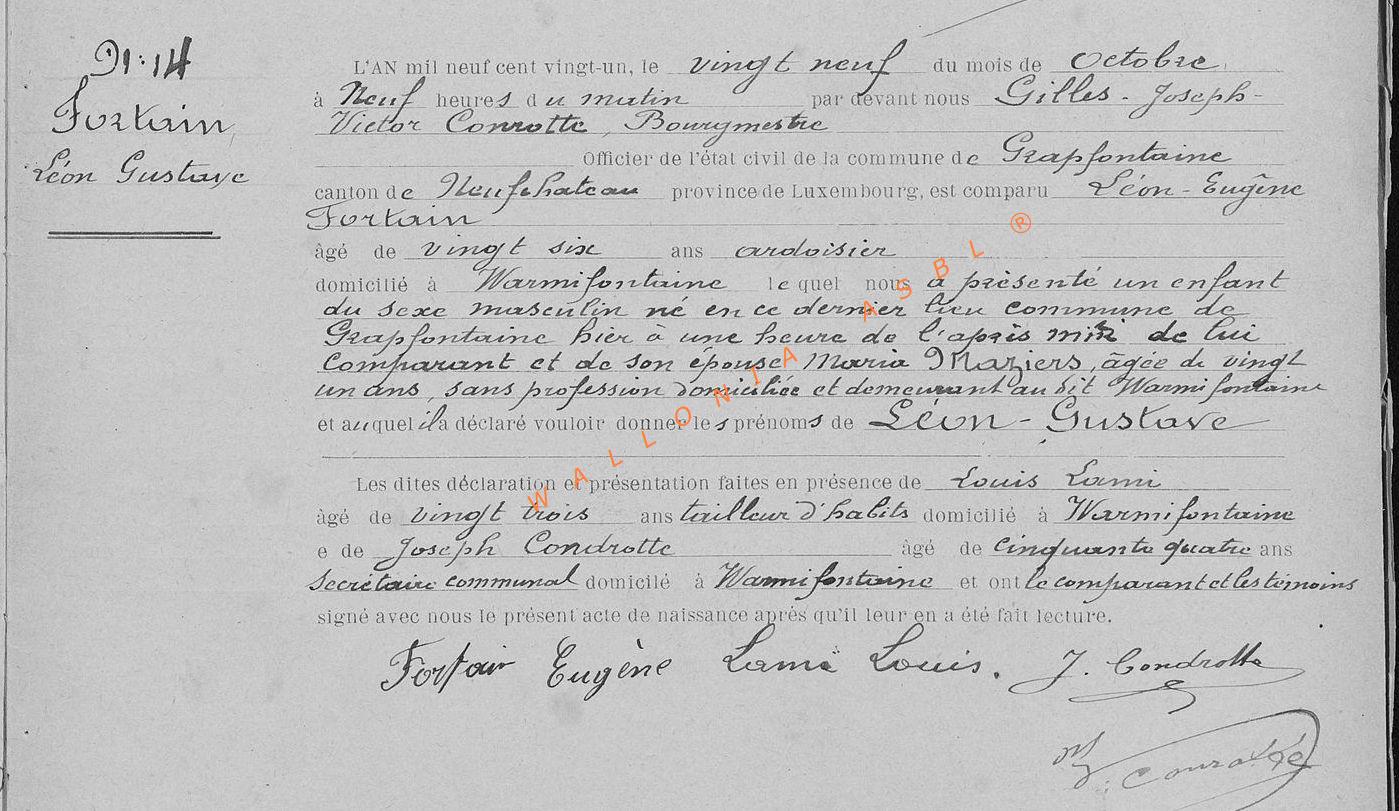 N: 14
Fortain
Léon Gustave
L'AN mil neuf cent vingt-un, le vingt neuf du mois de octobre,
à Neuf heures du matin par devant nous Gilles - Joseph-
Victor Conrotte, Bourgmestre
Officier de l'état civil de la commune de Grapfontaine
canton de Neufchateau province de Luxembourg, est comparu Léon-Eugène
Fortain
âgé de vingt six ans ardoisier
domicilié à Warmifontaine lequel nous a présenté un enfant
du sexe masculin né en ce dernier lieu commune de
Grapfontaine hier à une heure de l'après midi de lui
Comparant et de son épouse Maria Maziers, âgée de vingt
un ans, sans profession domiciliée et demeurant au dit Warmifontaine
et auquel il a déclaré vouloir donner les prénoms de Léon-Gustave
Les dites déclaration et présentation faites en présence de Louis Lami
âgé de vingt trois ans tailleur d'habits domicilié à Warmifontaine
e de Joseph Condrotte âgé de cinquante quatre ans
Secrétaire communal domicilé à Warmifontaine et ont le comparant et les témoins
signé avec nous le présent acte de naissance après qu'il leur en a été fait lecture.
Fortain Eugène Lami Louis. J. Condrotte
V. Conrotte
WALLONIA ASBL ®